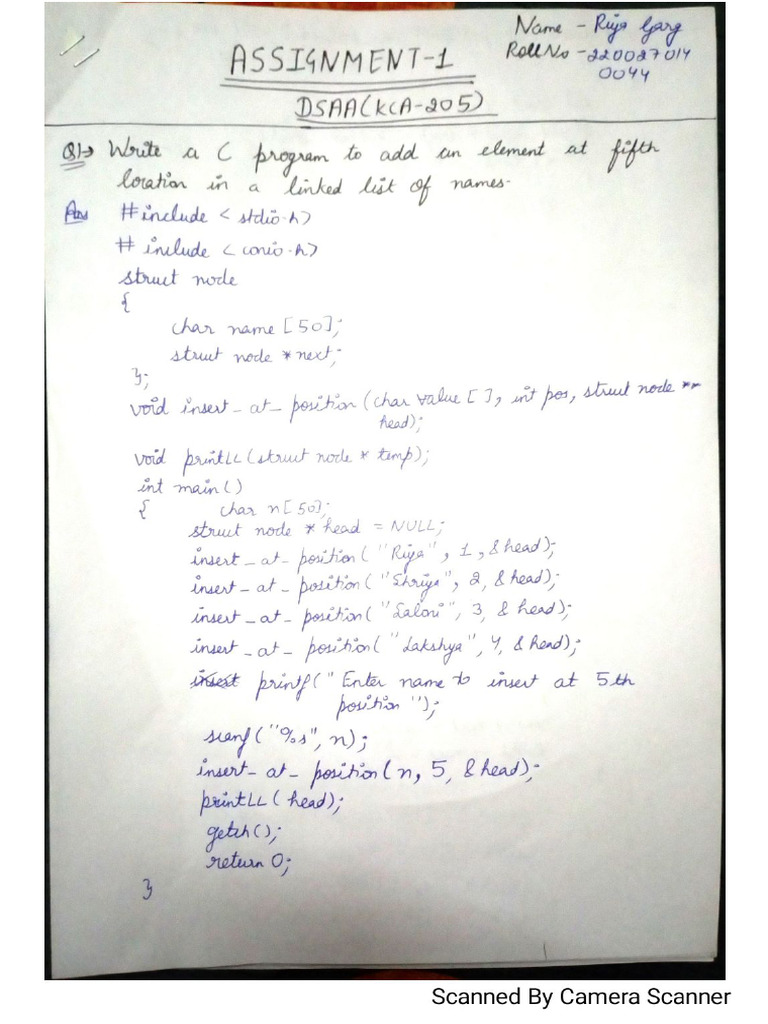 Name - Riya Garg
ASSIGNMENT-1
Roll No - 220027014
0044
DSAA(KCA-205)
Q1→ Write a C program to add an element at fifth
location in a linked list of names.
Ans #include < stdio.h>
# include < conio.h>
struct node
{
char name [50];
struct node *next;
};
void insert_at_position (char value [ ], int pos, struct node **
head);
void printLL (struct node * temp);
int main()
{ char n[50];
struct node * head = NULL;
insert_at_position( "Riya", 1, &head);
insert_at_position ("Shriya", 2, &head);
insert_at_position ("Saloni", 3, &head);
insert_at_position( "Lakshya", 4, &head);
insert printf(" Enter name to insert at 5th
position ");
scanf("%s", n);
insert_at_position(n, 5, &head);
printLL (head);
getch();
return 0;
}
Scanned By Camera Scanner